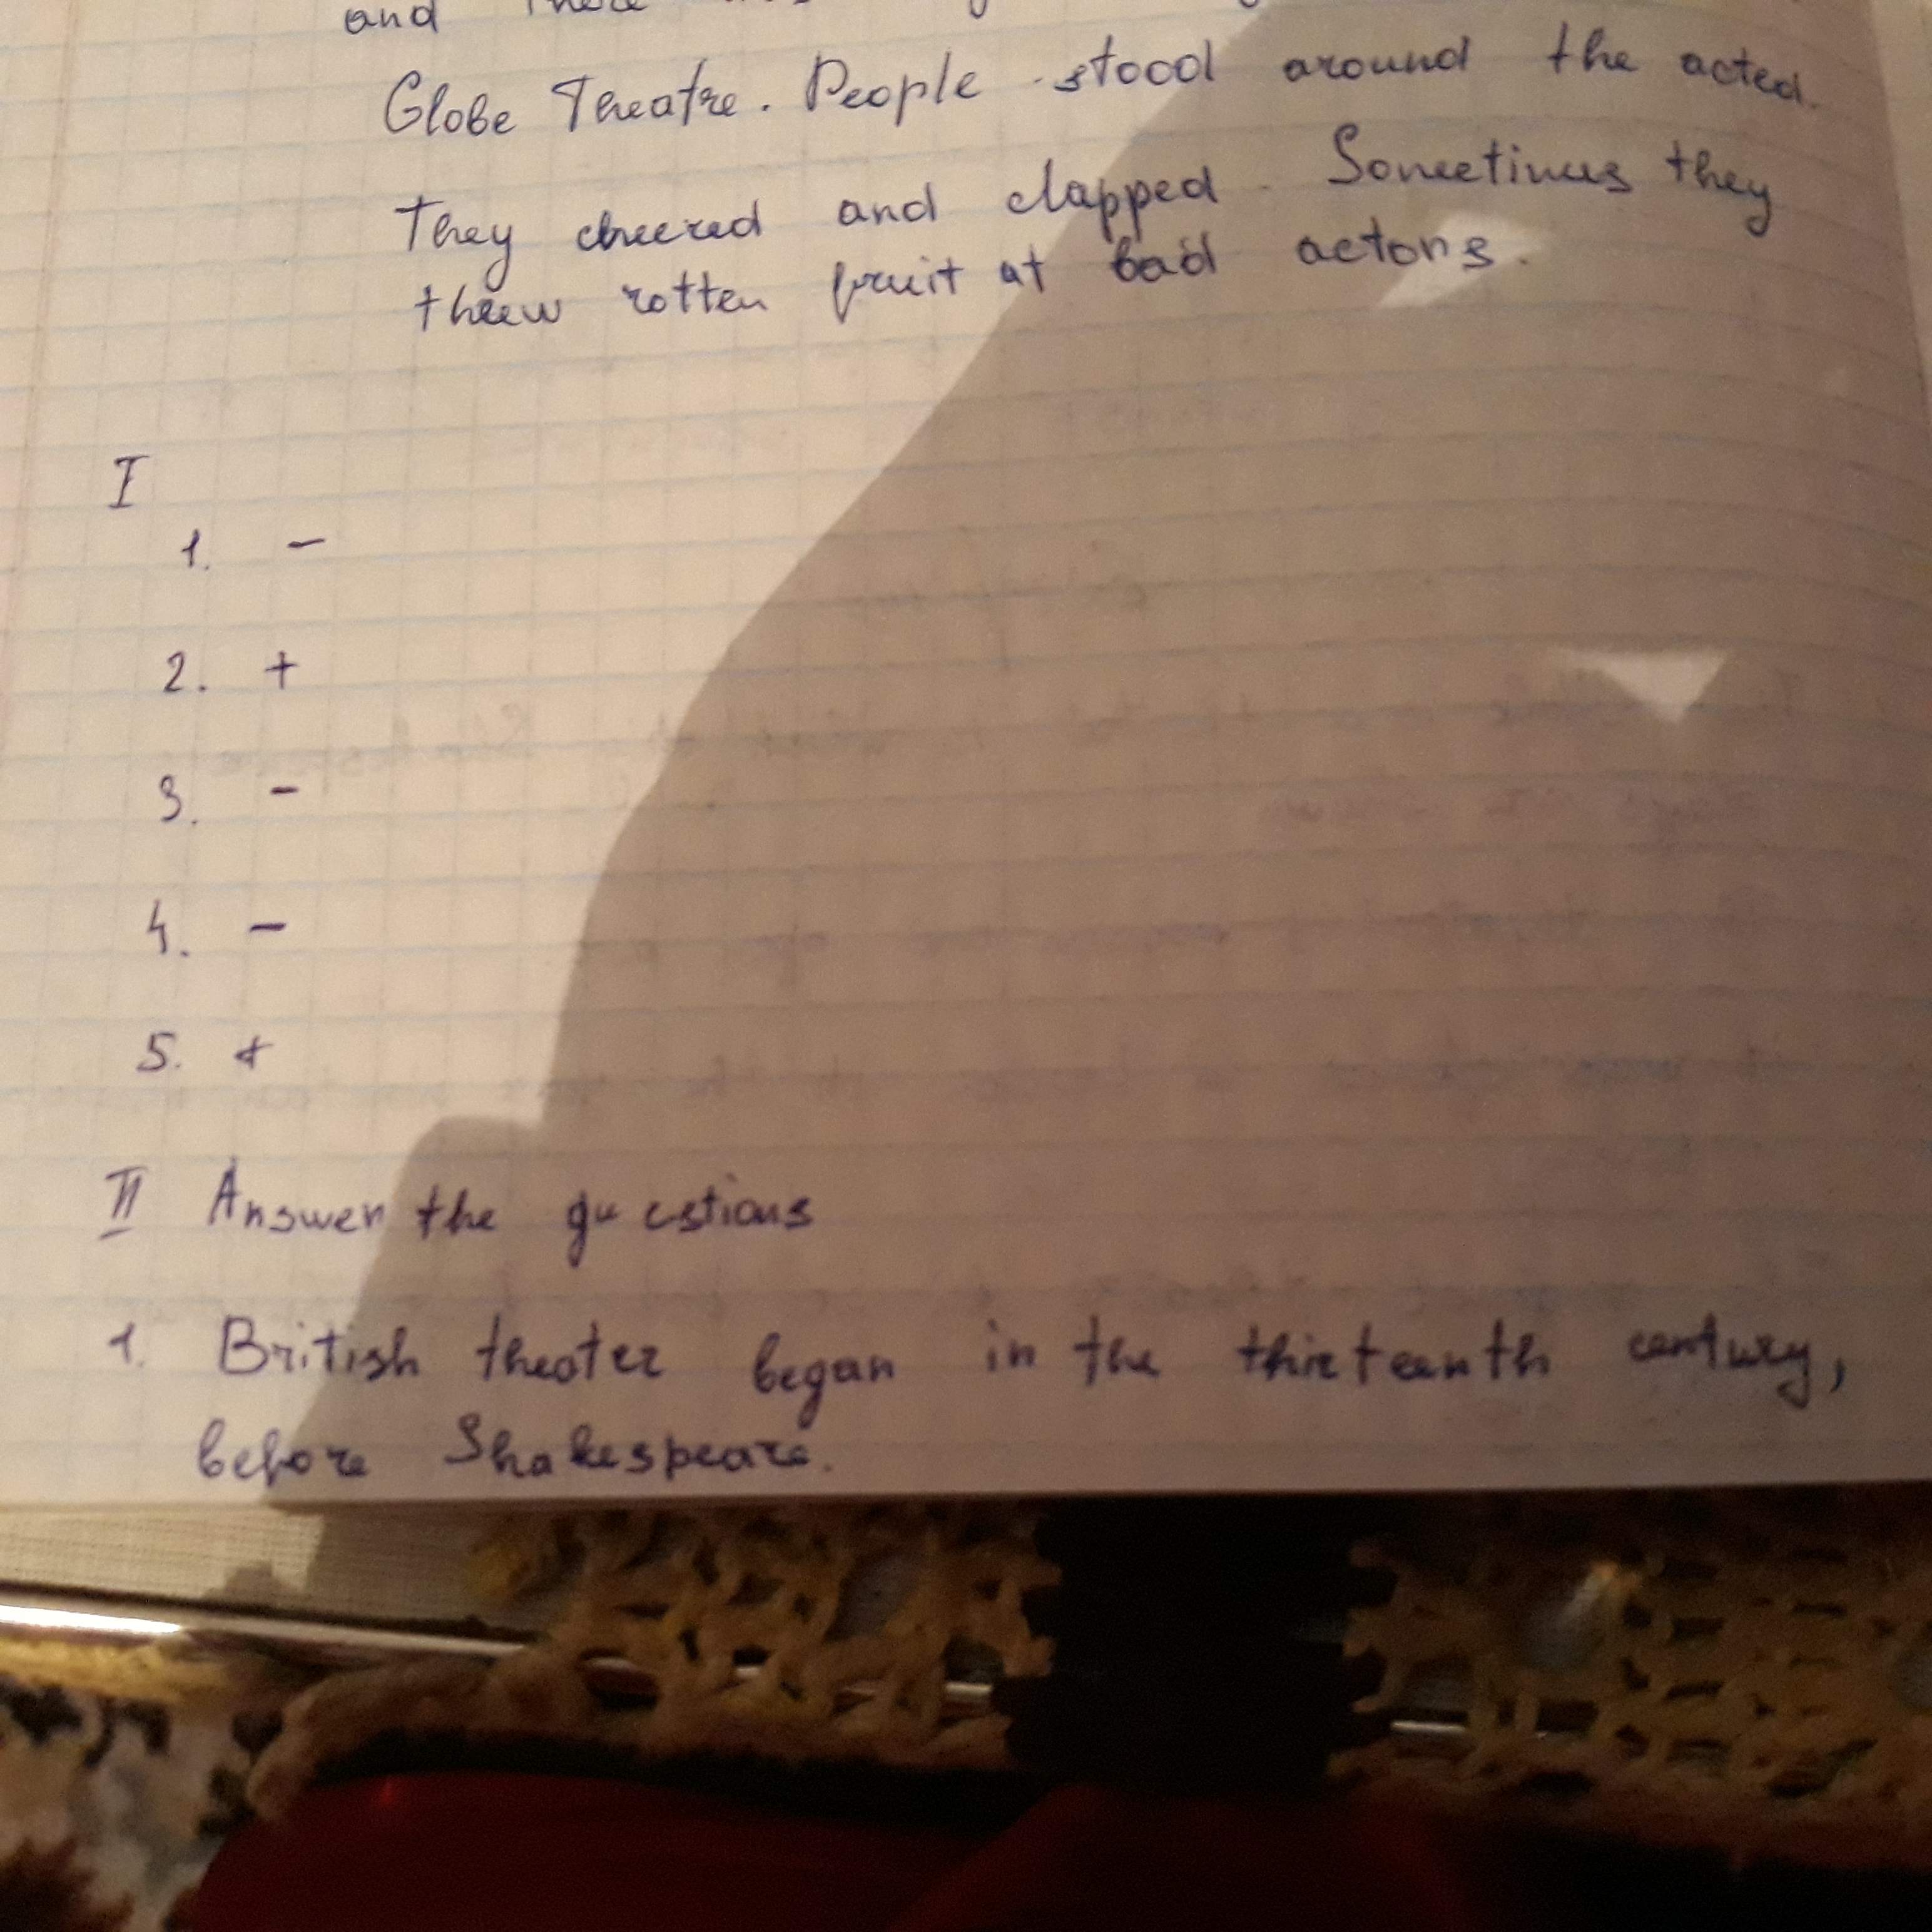 and there
Globe Theatre. People stood around the acted.
They cheered and clapped. Sometimes they
threw rotten fruit at bad actors.
I
1. -
2. +
3. -
4. -
5. +
II Answer the questions
1. British theater began in the thirteenth century,
before Shakespeare.